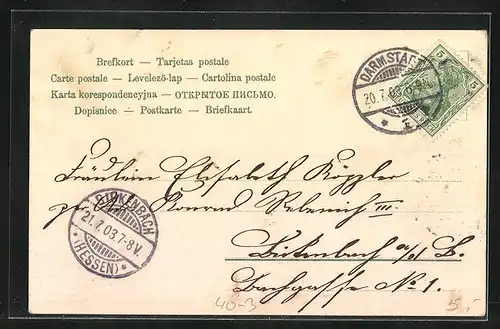 Brefkort — Tarjetas postale
Carte postale — Levelezö-lap — Cartolina postale
Karta korespondencyjna — ОТКРЫТОЕ ПИСЬМО.
Dopisnice — Postkarte — Briefkaart.
DARMSTADT
20.7.03.
5 5
Fräulein Elisabeth Köppler
Konrad III
BICKENBACH
21.7.03.7-8V.
(HESSEN)
Bickenbach a/d B.
Bachgasse No 1.
40-3
5.-